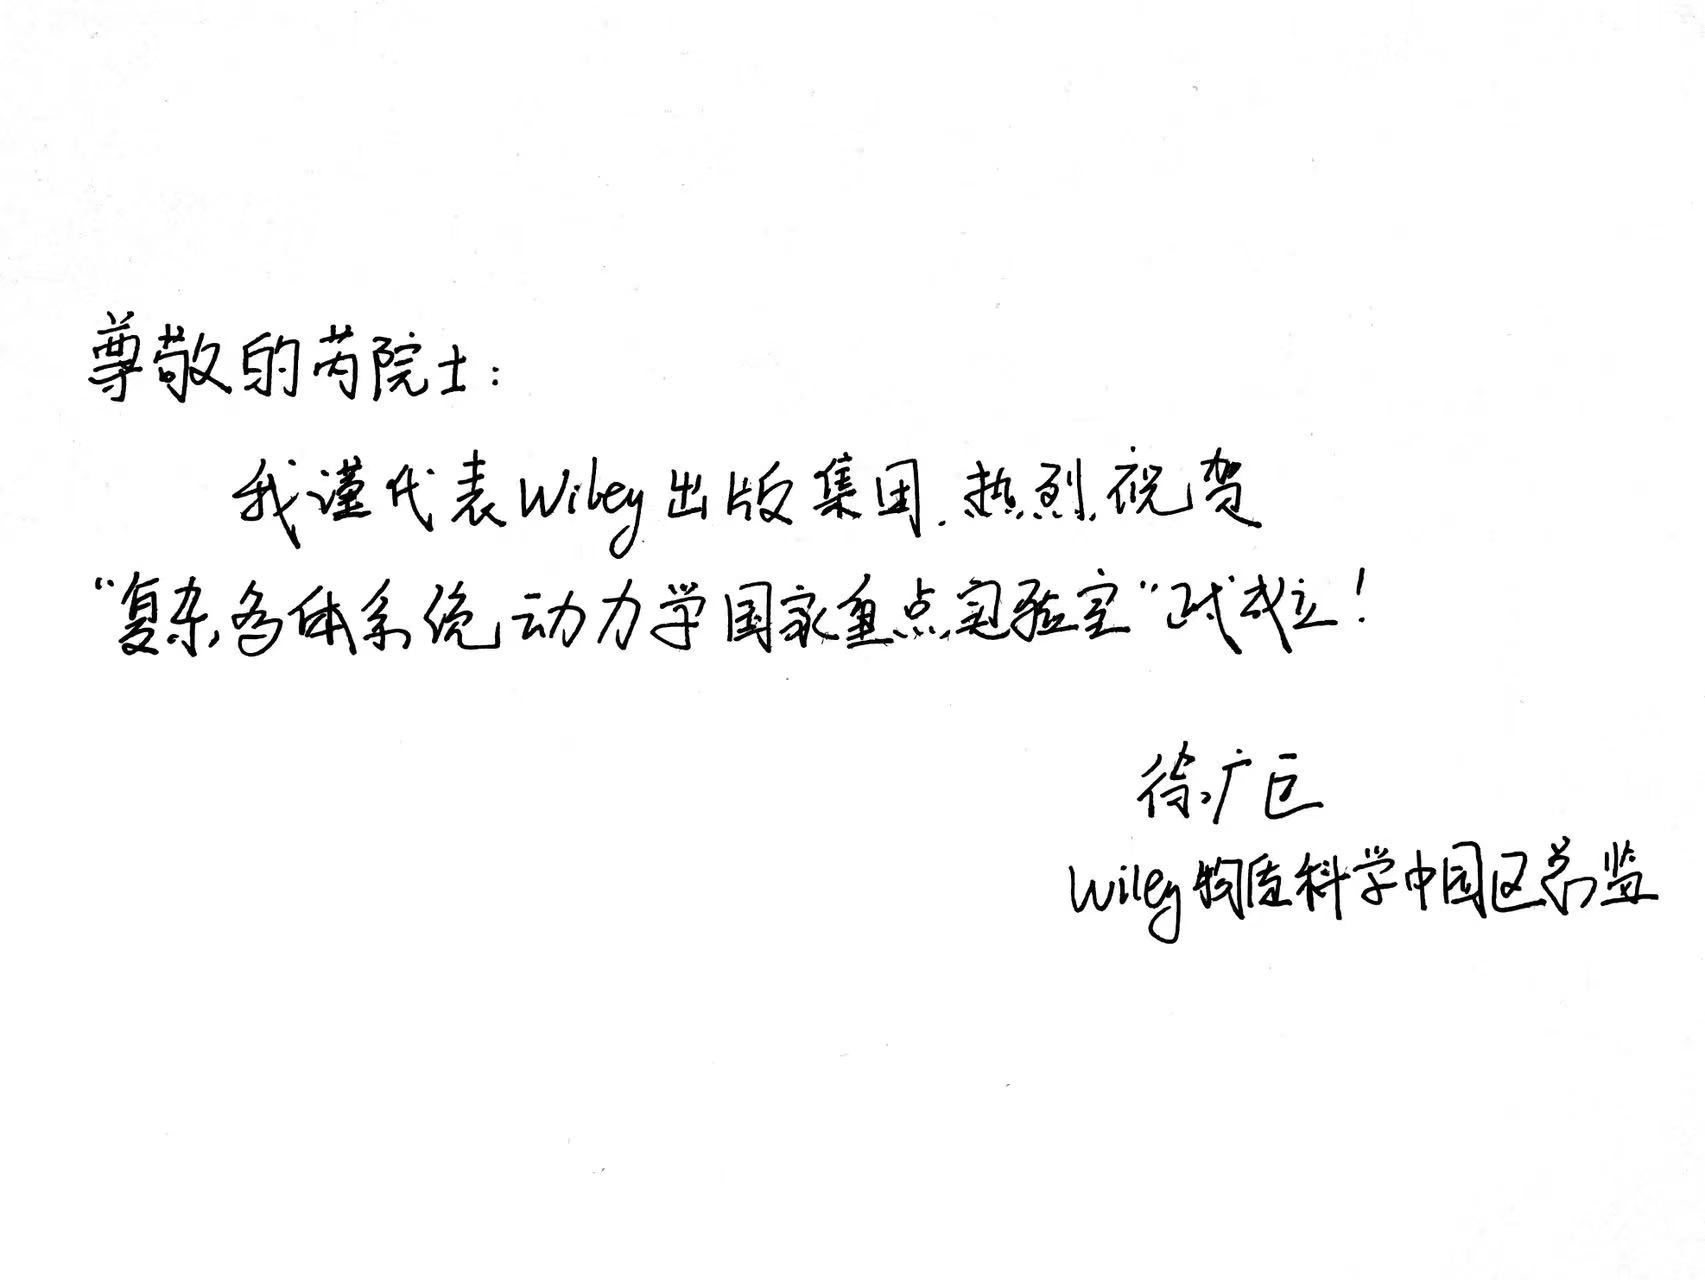 尊敬的芮院士：
我谨代表Wiley出版集团，热烈祝贺
“复杂多体系统动力学国家重点实验室”正式成立！
徐广臣
Wiley物质科学中国区总监